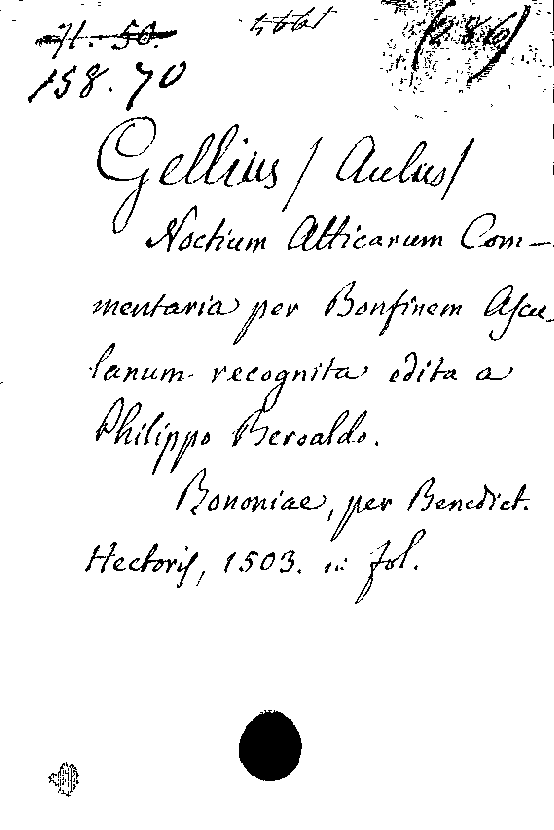 71. 50.
158. 70
Gellius / Aulus/
Noctium Atticarum Com-
mentaria per Bonfinem Ascu-
lanum recognita edita a
Philippo Beroaldo.
Bononiae, per Benedict.
Hectoris, 1503. in fol.